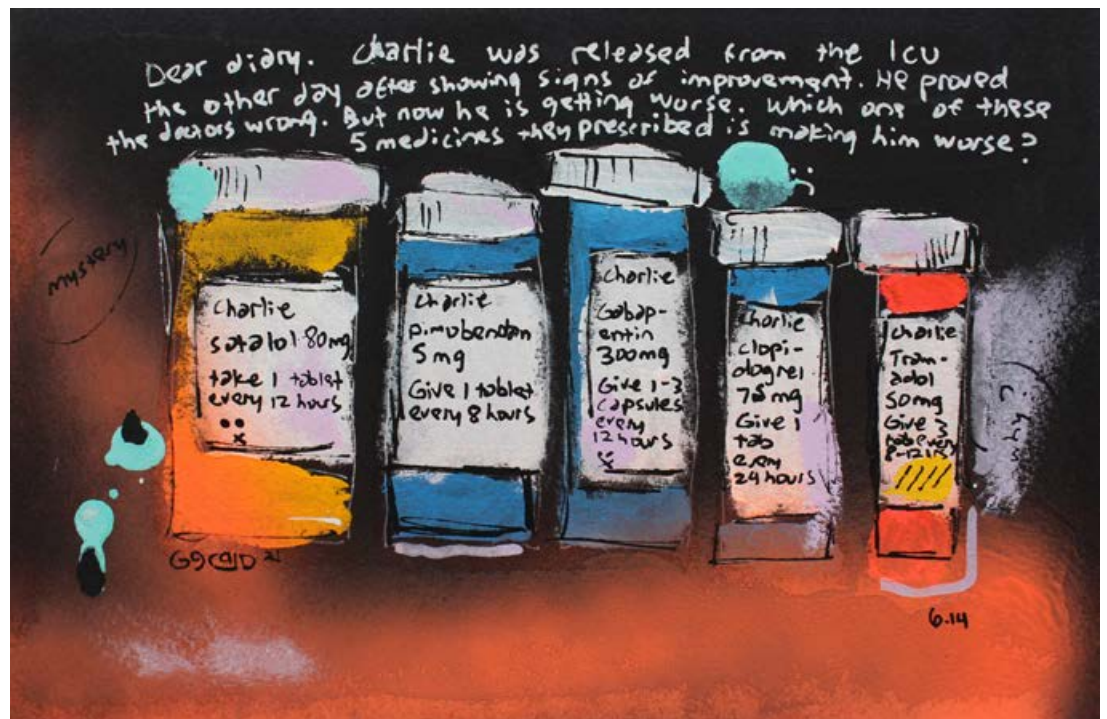 Dear diary. Charlie was released from the ICU
the other day after showing signs of improvement. He proved
the doctors wrong. But now he is getting worse. Which one of these
5 medicines they prescribed is making him worse?
mystery
Charlie
satalol 80mg
take 1 tablet
every 12 hours
Charlie
pimobendan
5mg
Give 1 tablet
every 8 hours
Charlie
Gabap-
entin
300mg
Give 1-3
capsules
every
12 hours
Charlie
Clopi-
dogrel
75mg
Give 1
tab
every
24 hours
Charlie
Tram-
adol
50mg
Give 3
tab every
8-12 hrs
6.14